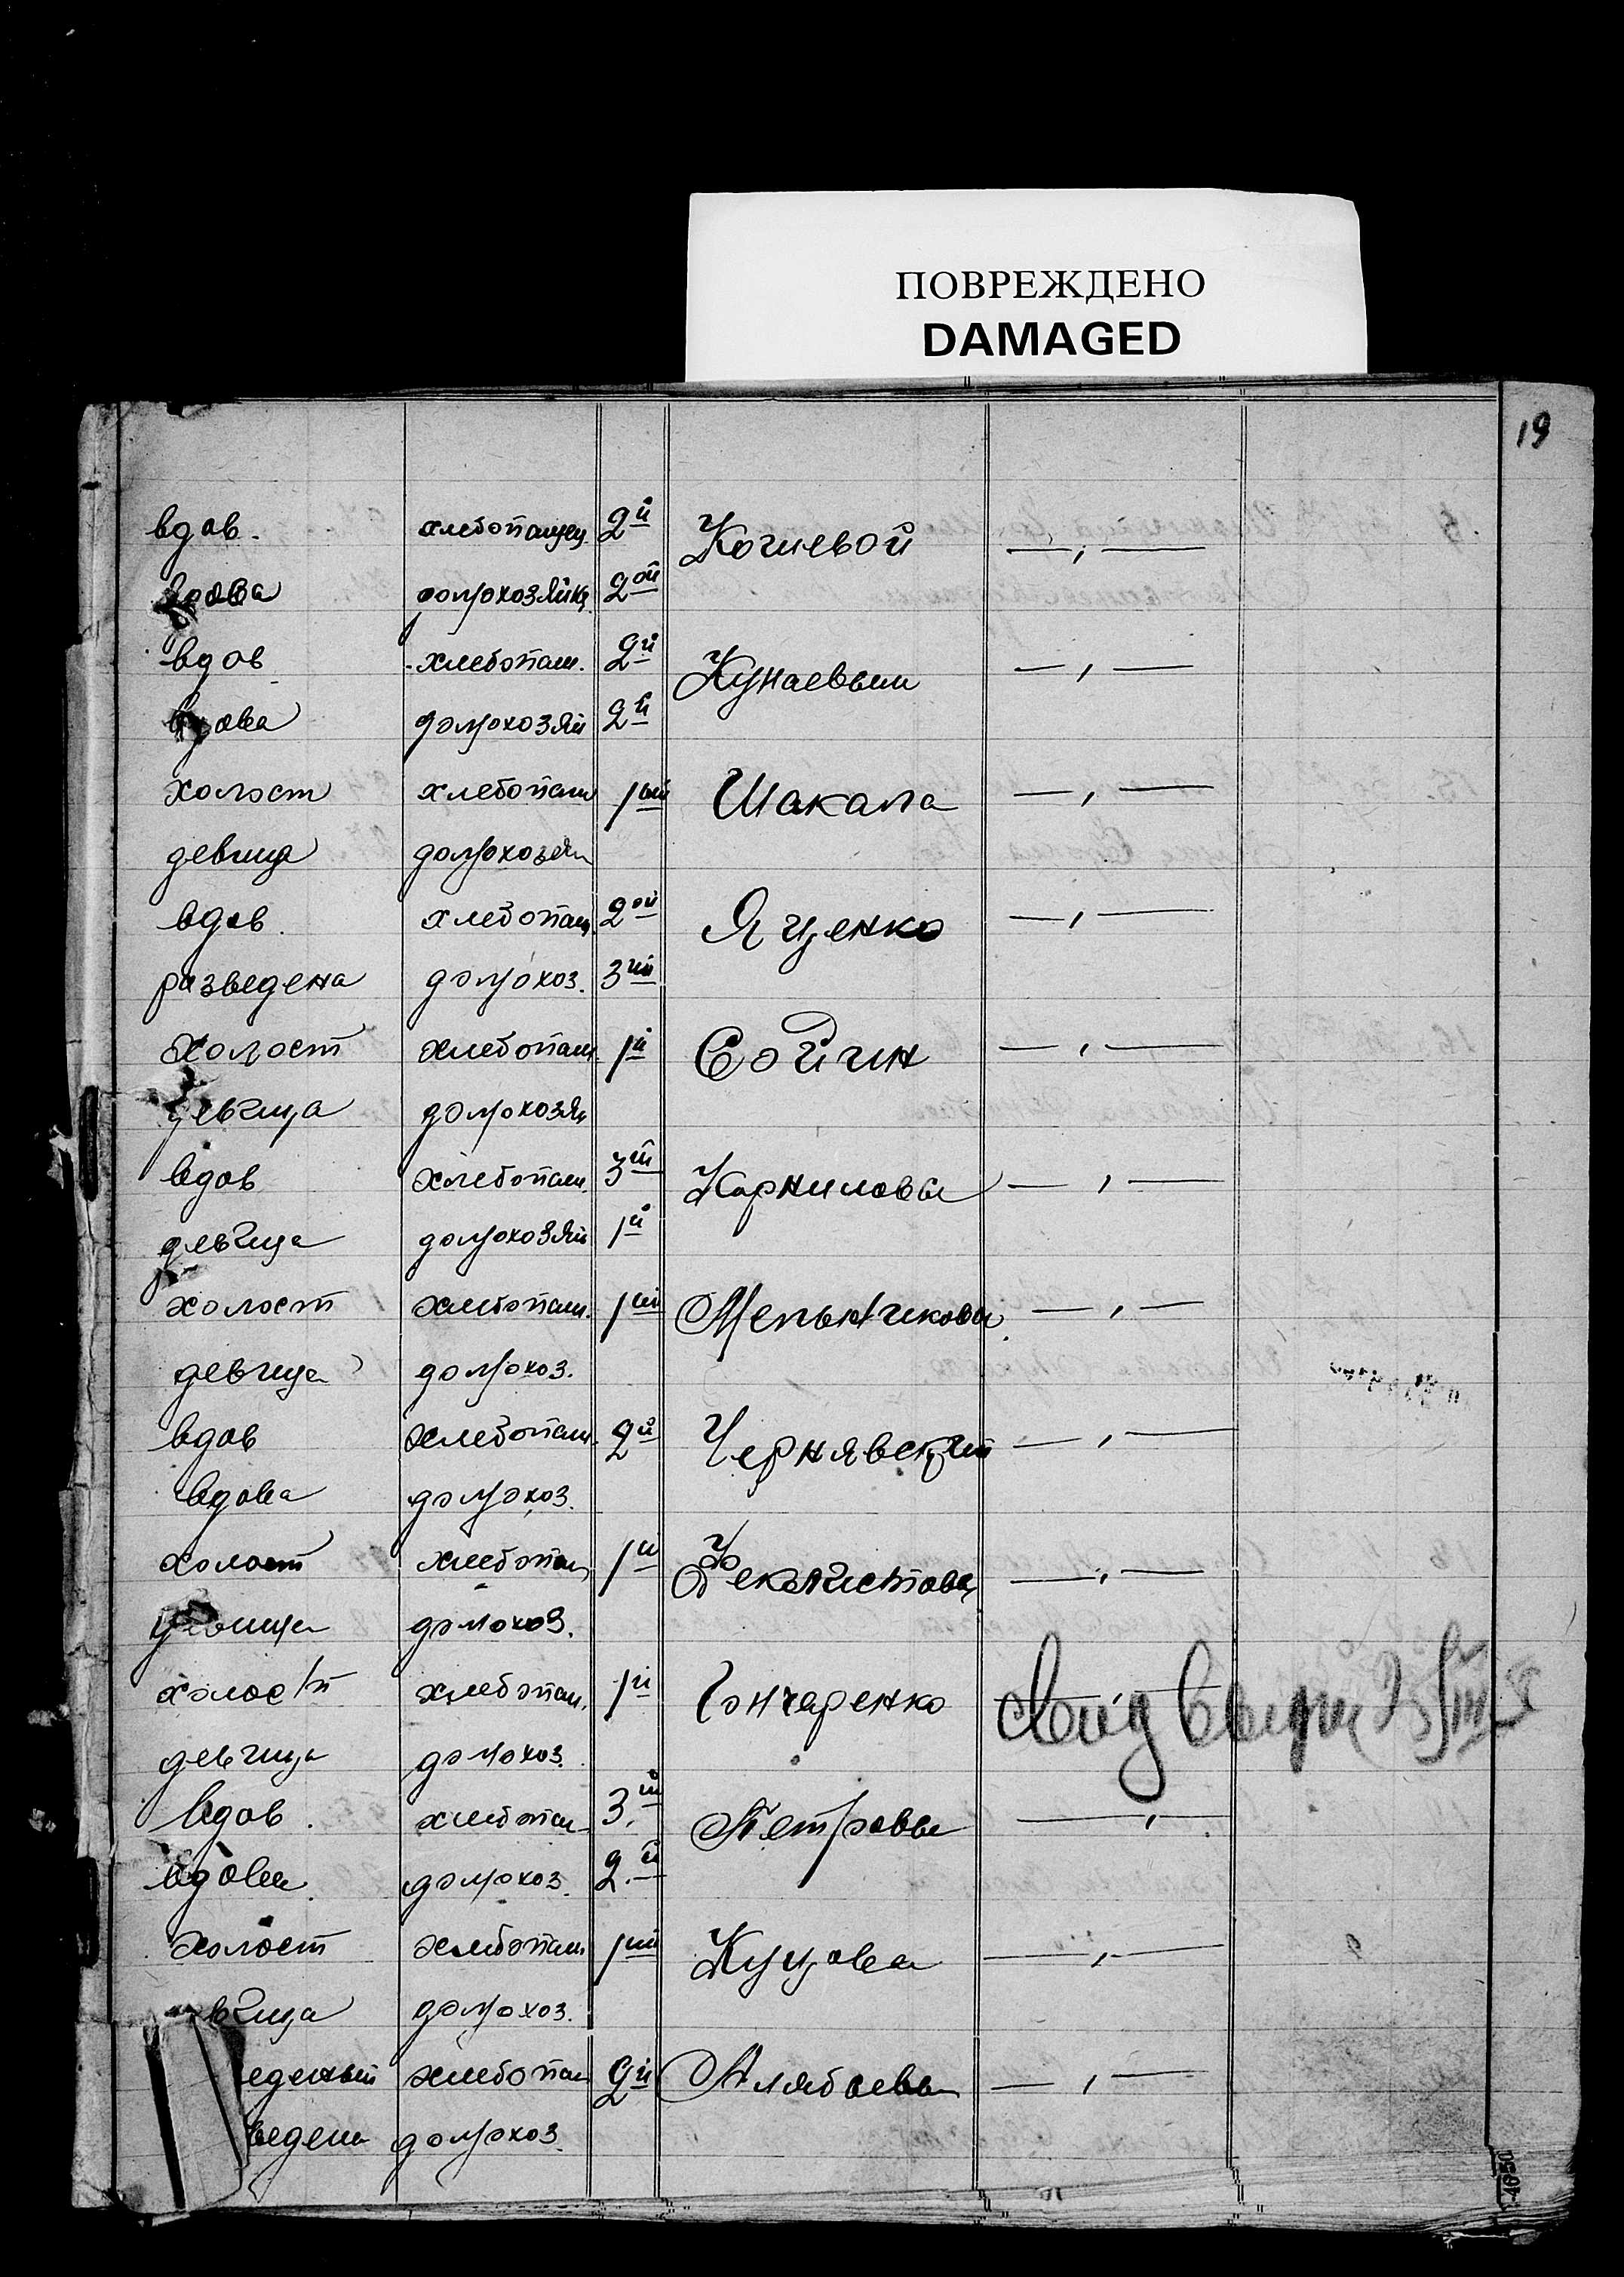 ПОВРЕЖДЕНО
DAMAGED
19
вдов. хлебопашец 2й Кочневой — , —
вдова домохозяйка 2ой
вдов хлебопаш. 2й Кунаевым — , —
вдова домохозяй 2й
холост хлебопаш 1ый Шакала — , —
девица домохозяй
вдов. хлебопаш. 2ой Яценко — , —
разведена домохоз. 3ий
холост хлебопаш 1й Сойчин — , —
девица домохозяй
вдов хлебопаш. 3ий Корниловы — , —
девица домохозяй 1й
холост хлебопаш. 1ый Мельчиковы — , —
девица домохоз.
вдов хлебопаш. 2й Чернявский — , —
вдова домохоз.
холост хлебопаш 1й Феактистова — , —
девица домохоз.
холост хлебопаш. 1й Гончаренко — , —
девица домохоз.
вдов. хлебопаш 3.й Петровы — , —
вдова. домохоз. 2.й
холост хлебопаш 1ый Куцова — , —
вица домохоз.
еденный хлебопаш 2й Алябьевы — , —
ведена домохоз.